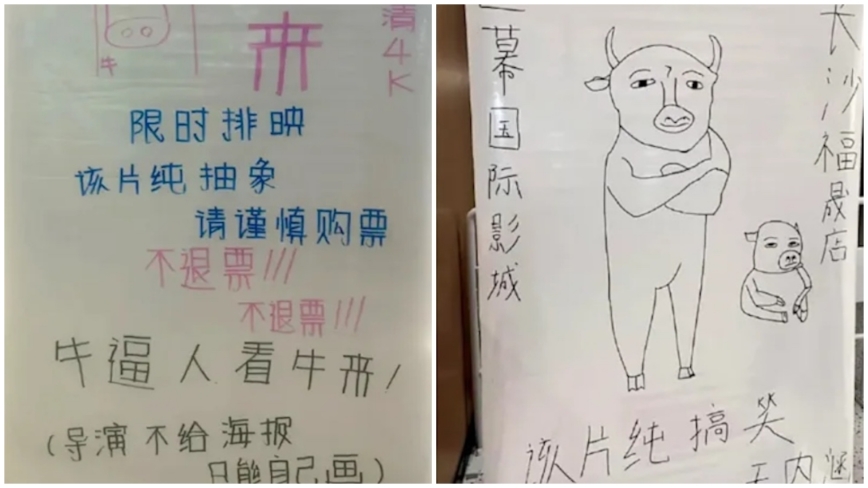 牛
来
清4K
限时排映
该片纯抽象
请谨慎购票
不退票!!!
不退票!!!
牛逼人看牛来!
(导演不给海报
只能自己画)
幕国际影城
长沙福晟店
该片纯搞笑
无内涵